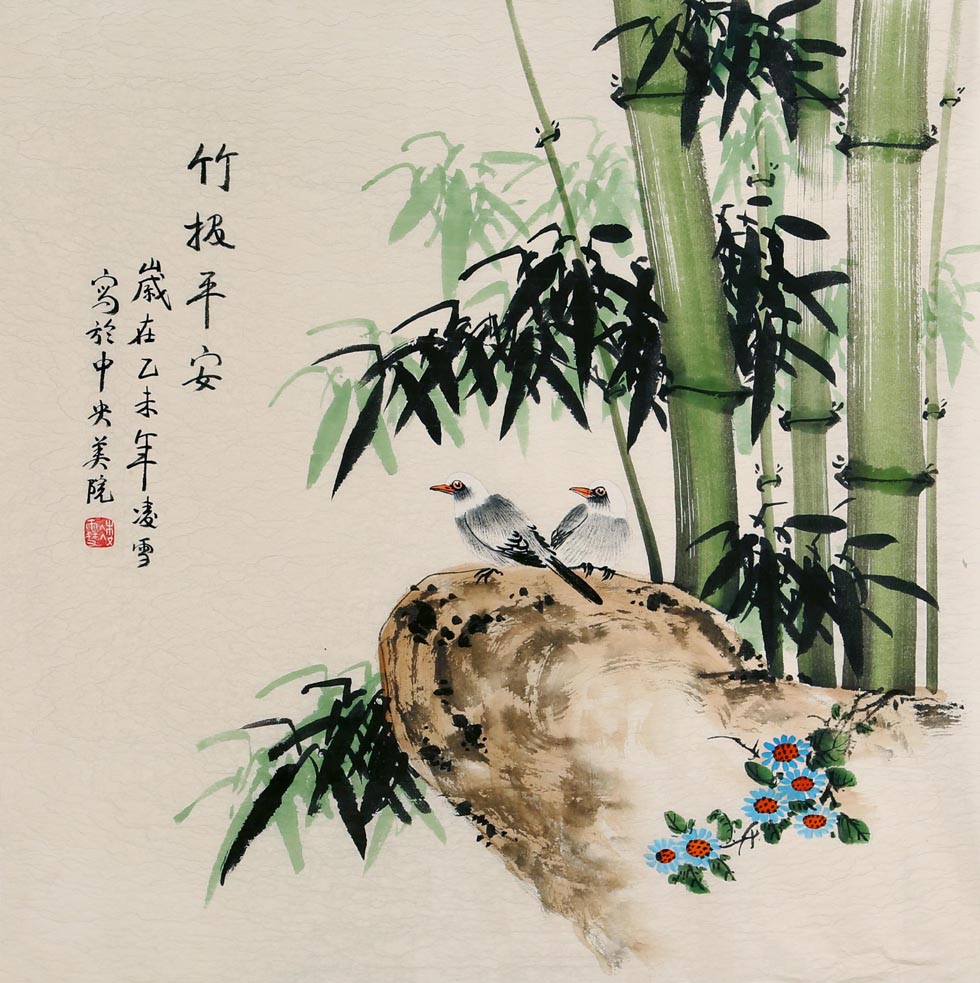 竹报平安
歲在乙未年凌雪
寫於中央美院